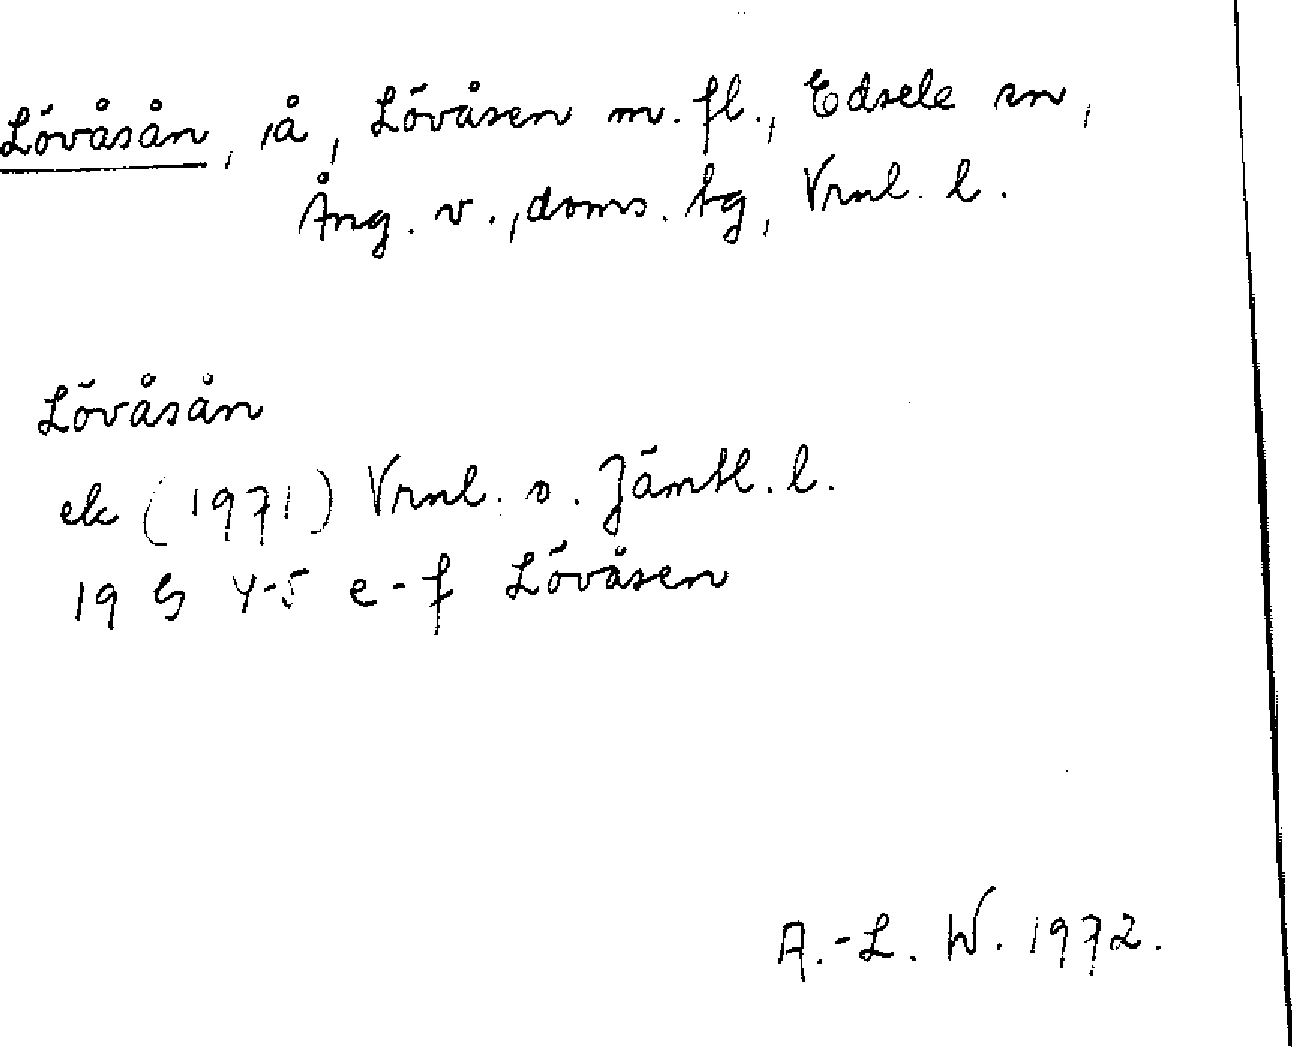 Lövåsån, å, Lövåsen m. fl., Edsele sn,
Ång. v., doms. tg, Vrnl. l.
Lövåsån
ek (1971) Vrnl. o. Jämtl. l.
19 G 4-5 e-f Lövåsen
A.-L. W. 1972.